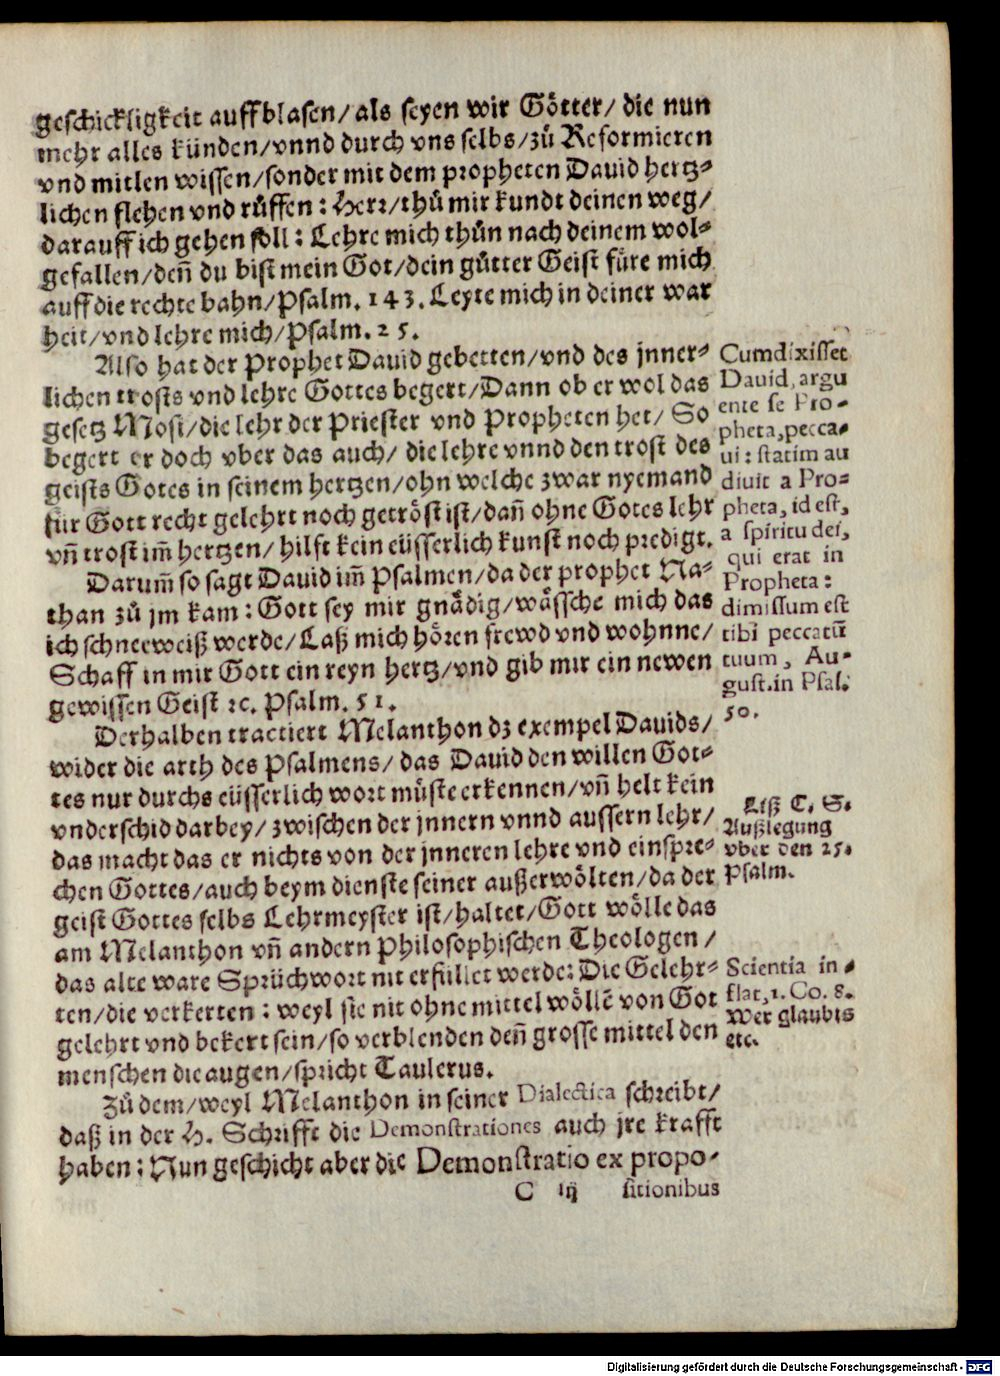 geschickligkeit auffblasen/als seyen wir Götter/die nun
mehr alles künden/vnnd durch vns selbs/zů Reformieren
vnd mitlen wissen/sonder mit dem propheten Dauid hertz-
lichen flehen vnd rüffen: Herr/thů mir kundt deinen weg/
darauff ich gehen soll: Lehre mich thůn nach deinem wol-
gefallen/deñ du bist mein Got/dein gůtter Geist füre mich
auff die rechte bahn/Psalm. 143. Leyte mich in deiner war
heit/vnd lehre mich/Psalm. 25.
Also hat der Prophet Dauid gebetten/vnd des jnner-
lichen trosts vnd lehre Gottes begert/Dann ob er wol das
gesetz Mosi/die lehr der Priester vnd Propheten het/ So
begert er doch vber das auch/ die lehre vnnd den trost des
geists Gotes in seinem hertzen/ohn welche zwar nyemand
für Gott recht gelehrt noch getröst ist/dañ ohne Gotes lehr
vñ trost im̃ hertzen/ hilft kein eüsserlich kunst noch predigt.
Darum̃ so sagt Dauid im̃ Psalmen/da der prophet Na-
than zů jm kam: Gott sey mir gnädig/wässche mich das
ich schneeweiß werde/Laß mich hören frewd vnd wohnne/
Schaff in mir Gott ein reyn hertz/vnd gib mir ein newen
gewissen Geist ꝛc. Psalm. 51.
Derhalben tractiert Melanthon dz exempel Dauids/
wider die arth des Psalmens/ das Dauid den willen Got-
tes nur durchs eüsserlich wort müste erkennen/vñ helt kein
vnderschid darbey/zwischen der jnnern vnnd aussern lehr/
das macht das er nichts von der jnneren lehre vnd einspre-
chen Gottes/auch beym dienste seiner außerwölten/da der
geist Gottes selbs Lehrmeyster ist/haltet/Gott wölle das
am Melanthon vñ andern Philosophischen Theologen/
das alte ware Sprüchwort nit erfüllet werde: Die Gelehr-
ten/die verkerten: weyl sie nit ohne mittel wöllẽ von Got
gelehrt vnd bekert sein/so verblenden deñ grosse mittel den
menschen die augen/spricht Taulerus.
Zů dem/weyl Melanthon in seiner Dialectica schreibt/
daß in der H. Schrifft die Demonstrationes auch jre krafft
haben: Nun geschicht aber die Demonstratio ex propo-
C iij sitionibus
Cum dixisset
Dauid, argu
ente se Pro-
pheta, pecca-
ui: statim au
diuit a Pro-
pheta, id est,
a spiritu dei,
qui erat in
Propheta:
dimissum est
tibi peccatũ
tuum, Au-
gust. in Psal.
50.
Liß C. S.
Außlegung
vber den 25.
Psalm.
Scientia in-
flat, 1. Co. 8.
Wer glaubts
etc.
Digitalisierung gefördert durch die Deutsche Forschungsgemeinschaft - DFG